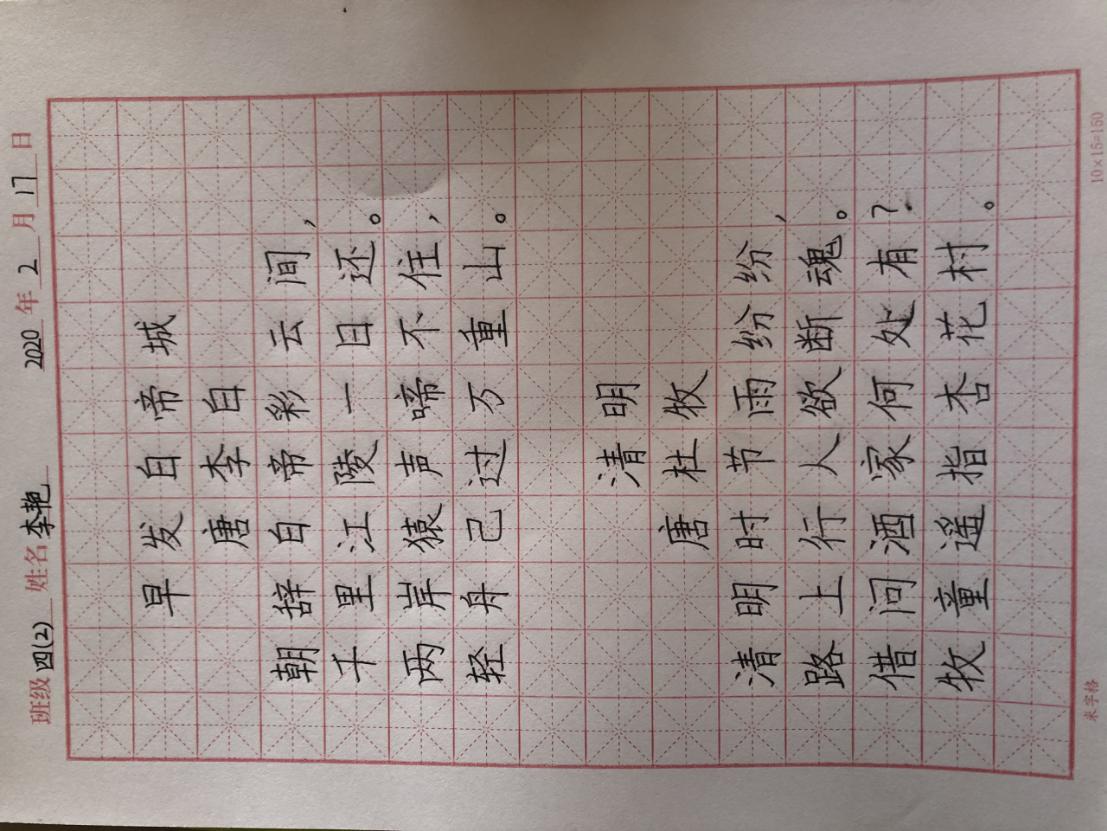 班级 四(2) 姓名 李艳 2020 年 2 月 17 日
早发白啼城
唐李白
朝辞白帝彩云间，
千里江陵一日还。
两岸猿声啼不住，
轻舟己过万重山。
清明
唐杜牧
清明时节雨纷纷，
路上行人欲断魂。
借问酒家何处有？
牧童遥指杏花村。
米字格 10×15=150